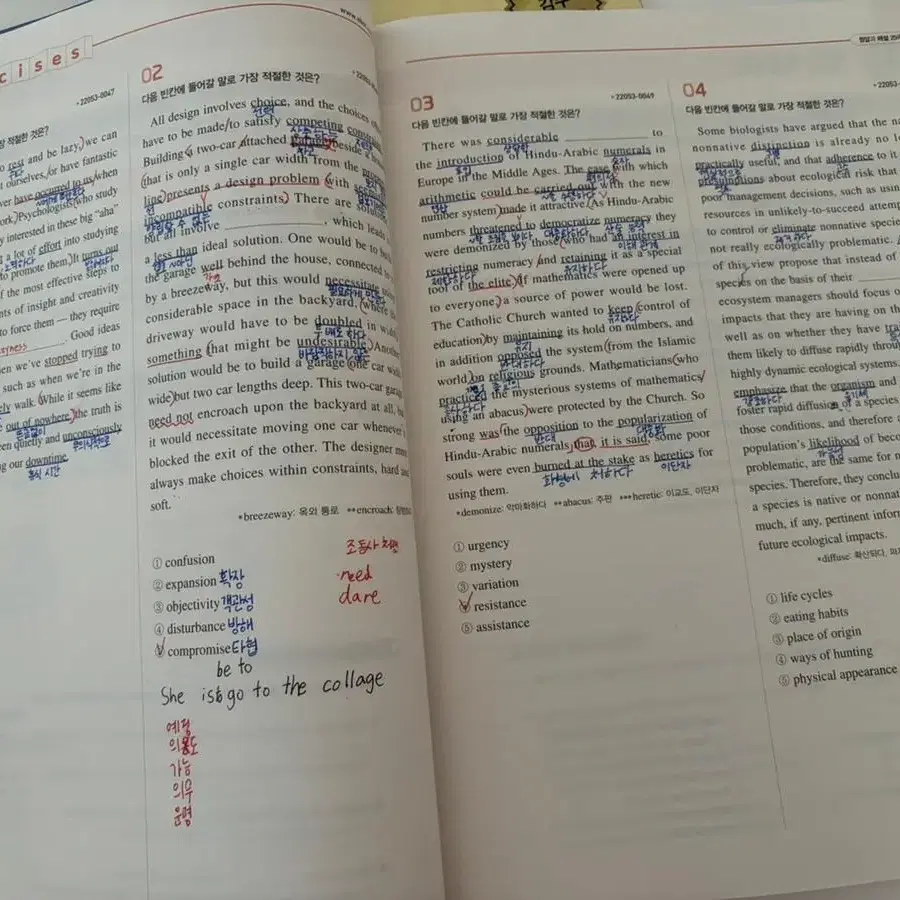 cises
22053-0047
적절한 것은?
rest and be lazy, we can
t ourselves, or have fantastic
ever have occurred to us when
work. Psychologists who study
y interested in these big "aha"
t a lot of effort into studying
to promote them. It turns out
f the most effective steps to
nts of insight and creativity
to force them — they require
Good ideas
en we've stopped trying to
such as when we're in the
ely walk. While it seems like
out of nowhere, the truth is
een quietly and unconsciously
무의식적으로
ng our downtime.
휴식 시간
02
22053-0048
다음 빈칸에 들어갈 말로 가장 적절한 것은?
All design involves choice, and the choices
선택
have to be made to satisfy competing
Building a two-car attached
(that is only a single car width from the
line) presents a design problem with
incompatible constraints. There are
but all involve __________, which leads
a less than ideal solution. One would be to
the garage well behind the house, connected
by a breezeway, but this would necessitate
considerable space in the backyard, where
driveway would have to be doubled in
something that might be undesirable. Another
바람직하지 않은
solution would be to build a garage one car
wide but two car lengths deep. This two-car
need not encroach upon the backyard at all, but
it would necessitate moving one car whenever
blocked the exit of the other. The designer must
always make choices within constraints, hard and
soft.
*breezeway: 옥외 통로 **encroach:
① confusion
② expansion 확장
③ objectivity 객관성
④ disturbance 방해
⑤ compromise 타협
조동사
need
dare
be to
She is go to the collage
예정
의도
가능
의무
운명
03
22053-0049
다음 빈칸에 들어갈 말로 가장 적절한 것은?
There was considerable __________ to
상당한
the introduction of Hindu-Arabic numerals in
Europe in the Middle Ages. The ease with which
arithmetic could be carried out with the new
number system made it attractive. As Hindu-Arabic
numbers threatened to democratize numeracy they
were demonized by those who had an interest in
restricting numeracy and retaining it as a special
제한하다
유지하다
tool of the elite. If mathematics were opened up
to everyone, a source of power would be lost.
The Catholic Church wanted to keep control of
education by maintaining its hold on numbers, and
유지
in addition opposed the system from the Islamic
반대하다
world on religious grounds. Mathematicians who
practiced the mysterious systems of mathematics
using an abacus were protected by the Church. So
strong was the opposition to the popularization of
반대
대중화
Hindu-Arabic numerals that, it is said, some poor
souls were even burned at the stake as heretics for
화형에 처하다
이단자
using them.
*demonize: 악마화하다 **abacus: 주판 ***heretic: 이교도, 이단자
① urgency
② mystery
③ variation
④ resistance
⑤ assistance
04
다음 빈칸에 들어갈 말로 가장 적절한 것은?
Some biologists have argued that the
nonnative distinction is already no
practically useful, and that adherence to it
about ecological risk that
poor management decisions, such as using
resources in unlikely-to-succeed attempts
to control or eliminate nonnative species
제거하다
not really ecologically problematic.
of this view propose that instead of
species on the basis of their __________
ecosystem managers should focus on
impacts that they are having on the
well as on whether they have
them likely to diffuse rapidly through
highly dynamic ecological systems.
emphasize that the organism and
강조하다
유기체
foster rapid diffusion of a species
those conditions, and therefore a
population's likelihood of becoming
가능성
problematic, are the same for
species. Therefore, they conclude
a species is native or nonnative
much, if any, pertinent information
future ecological impacts.
*diffuse: 확산되다,
① life cycles
② eating habits
③ place of origin
④ ways of hunting
⑤ physical appearance